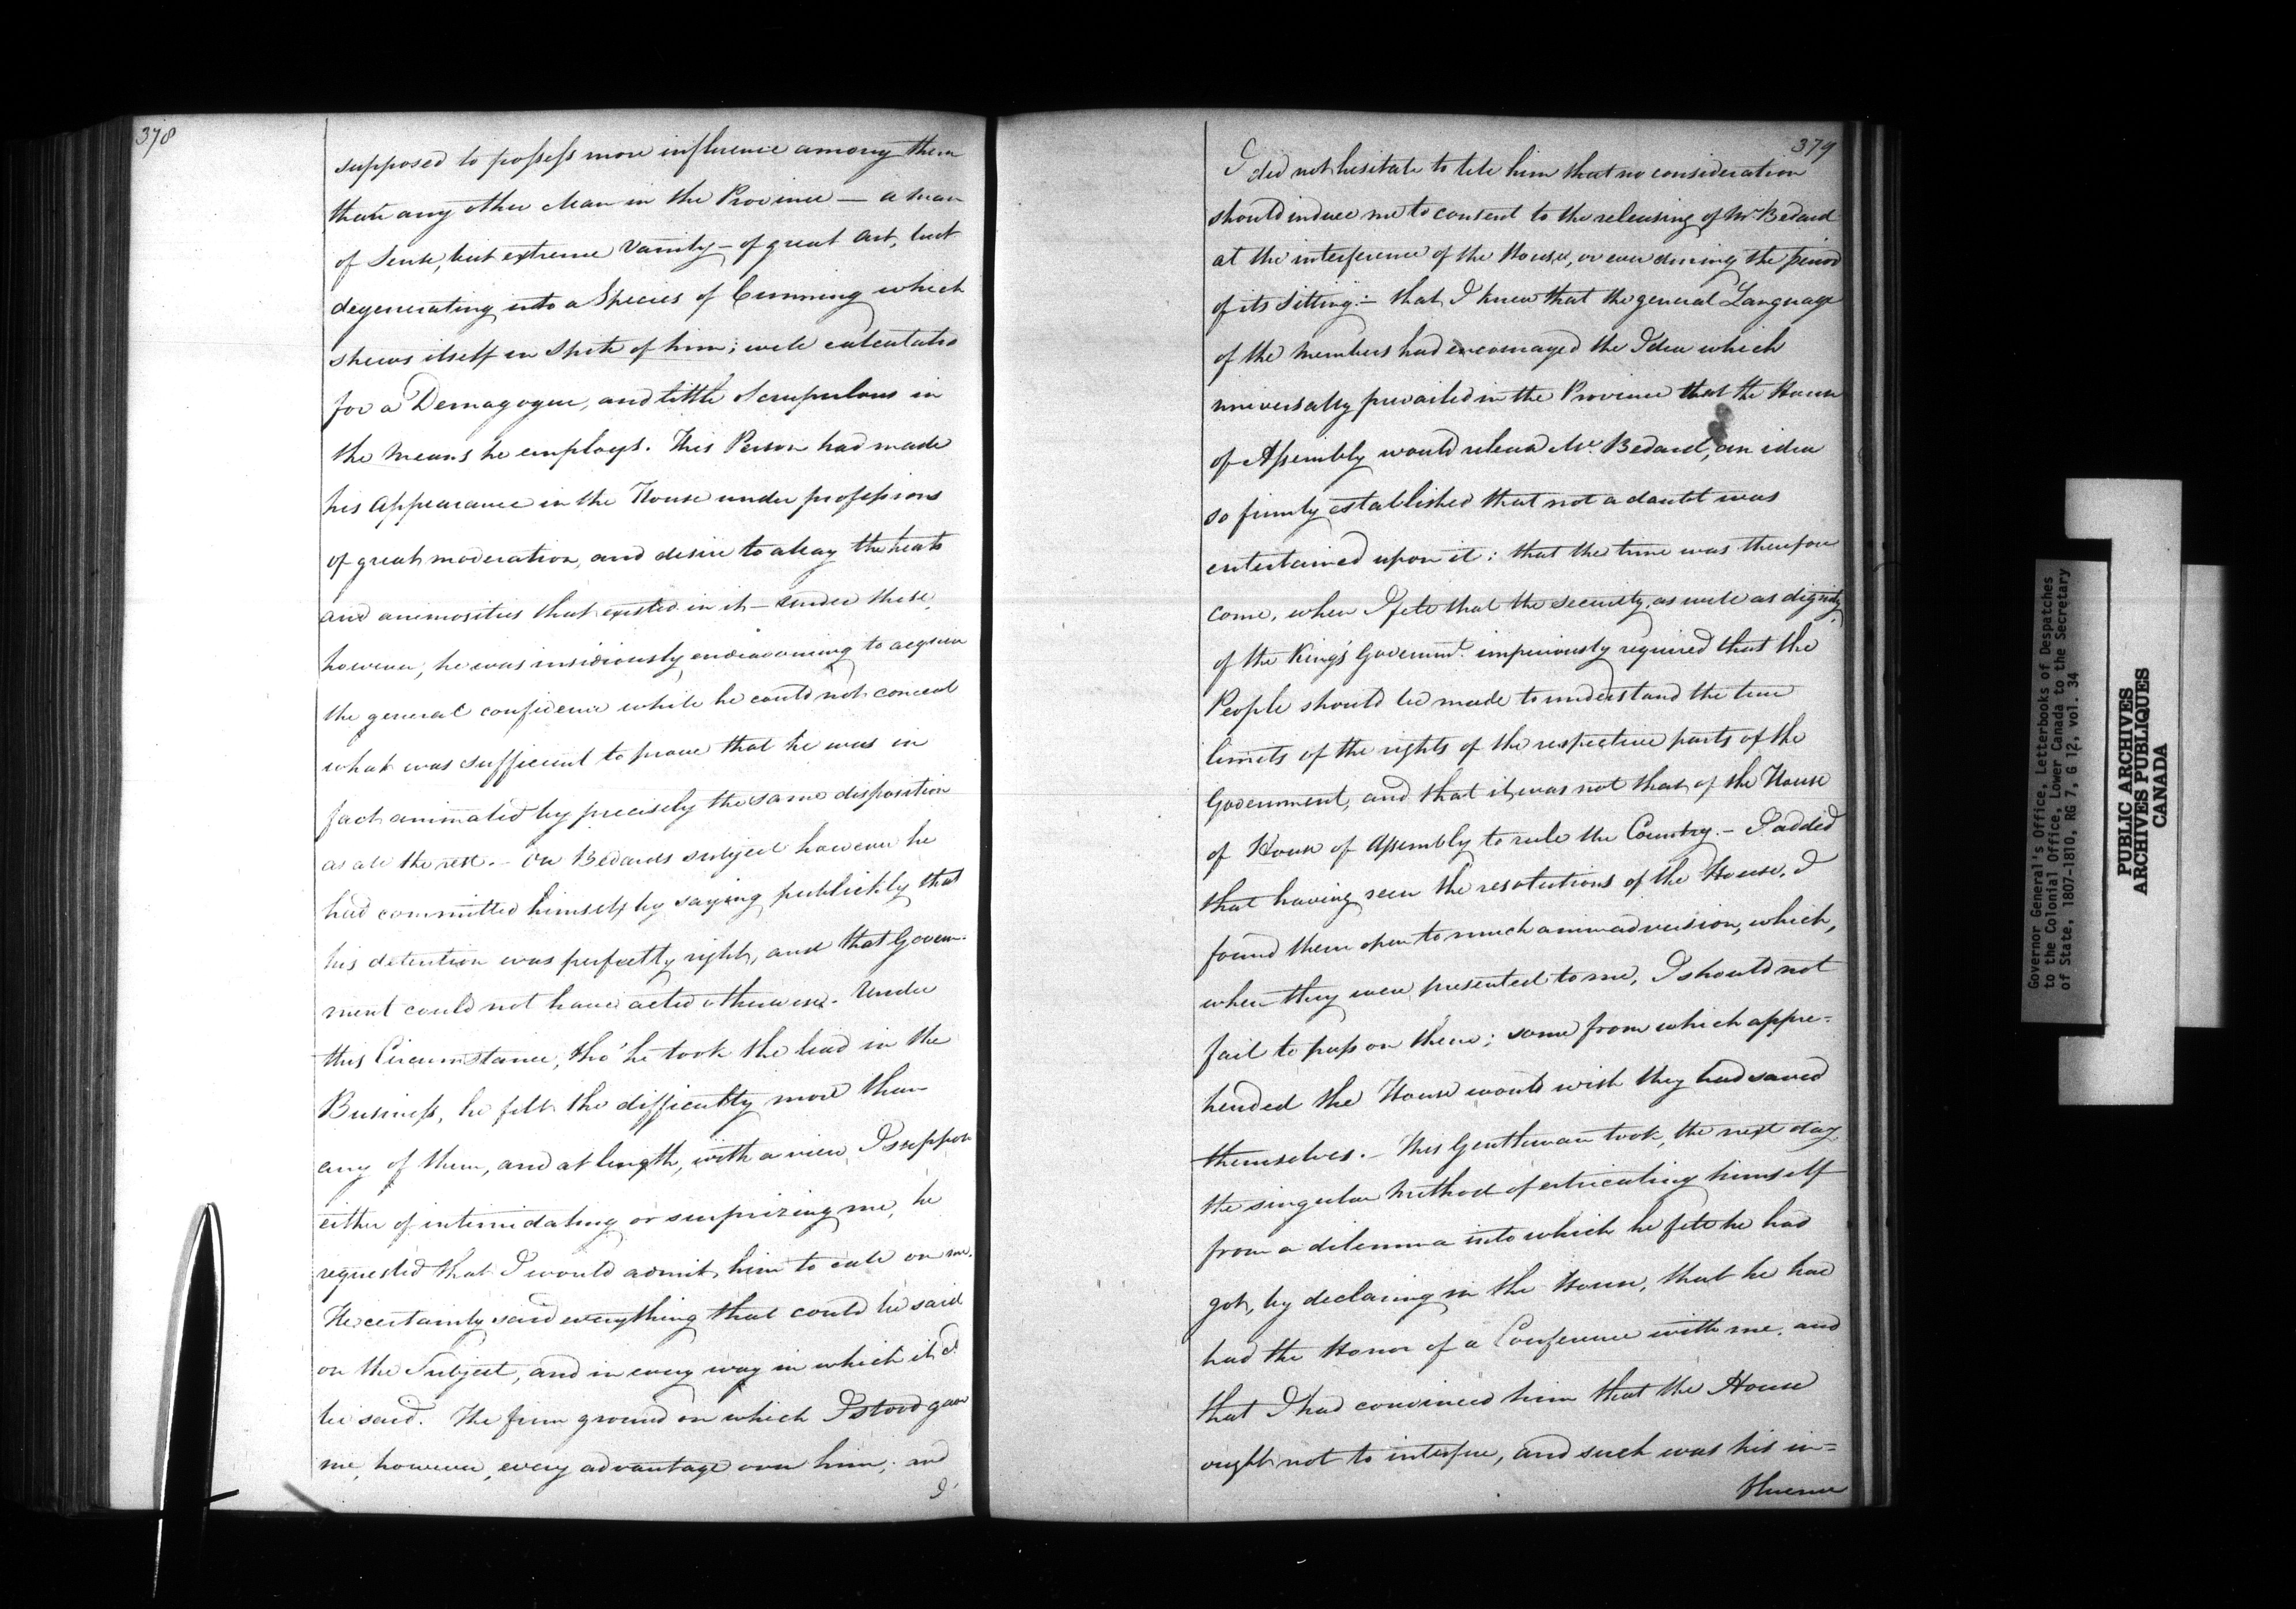 378
supposed to possess more influence among them
than any other Man in the Province — a man
of Sense, but extreme Vanity — of great Art, but
degenerating into a Species of Cunning which
shews itself in Spite of him; well calculated
for a Demagogue, and little Scrupulous in
the Means he employs. This Person had made
his Appearance in the House under professions
of great moderation, and desire to allay the heats
and animosities that existed in it — Under these,
however, he was insidiously endeavouring to acquire
the general confidence while he could not conceal
what was sufficient to prove that he was in
fact animated by precisely the same disposition
as all the rest. — On Bedards subject however he
had committed himself by saying publickly that
his detention was perfectly right, and that Govern-
ment could not have acted otherwise. Under
this Circumstance, tho' he took the lead in the
Business, he felt the difficulty more than
any of them, and at length, with a view, I suppose
either of intimidating or surprizing me, he
requested that I would admit him to call on me.
He certainly said everything that could be said
on the Subject, and in every way in which it cd.
be said. The firm ground on which I stood gave
me, however, every advantage over him; and
I
379
I did not hesitate to tell him that no consideration
should induce me to consent to the releasing of Mr Bedard
at the interference of the House, or even during the period
of its Sitting: — that I knew that the general Language
of the Members had encouraged the Idea which
universally prevailed in the Province that the House
of Assembly would release Mr. Bedard, an idea
so firmly established that not a doubt was
entertained upon it: that the time was therefore
come, when I felt that the security, as well as dignity,
of the King's Governmt. imperiously required that the
People should be made to understand the true
limits of the rights of the respective parts of the
Government, and that it was not that of the House
of House of Assembly to rule the Country. — I added
that having seen the resolutions of the House, I
found them open to much animadversion, which,
when they were presented to me, I should not
fail to pass on them; some from which appre-
hended the House would wish they had saved
themselves. — This Gentleman took, the next day
the singular Method of extricating himself
from a dilemma into which he felt he had
got, by declaring in the House, that he had
had the Honor of a Conference with me, and
that I had convinced him that the House
ought not to interfere, and such was his in-
fluence
Governor General's Office, Letterbooks of Despatches
to the Colonial Office, Lower Canada to the Secretary
of State, 1807-1810, RG 7, G 12, vol. 34
PUBLIC ARCHIVES
ARCHIVES PUBLIQUES
CANADA